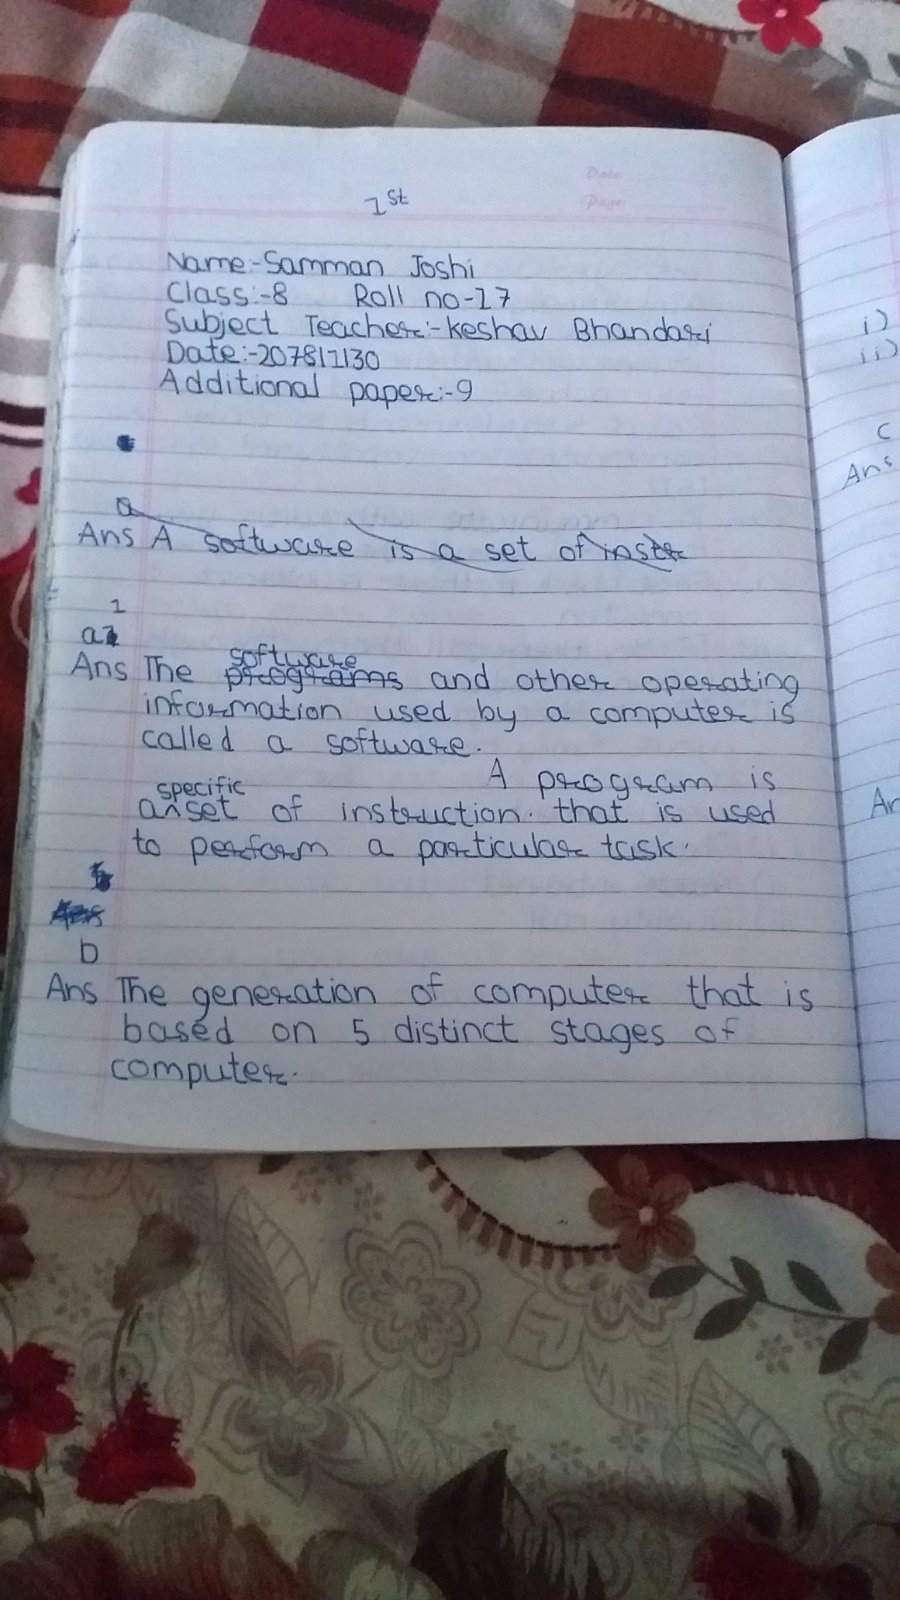 Date:
Page:
1st
Name:-Samman Joshi
Class:-8 Roll no-17
Subject Teacher:-Keshav Bhandari
Date:-2078/1/30
Additional paper:-9
a
Ans A software is a set of instr
1
a
Ans The programs and other operating
software
information used by a computer is
called a software.
A program is
specific
a set of instruction. that is used
to perform a particular task.
b
Ans The generation of computer that is
based on 5 distinct stages of
computer.
i)
ii)
c
Ans